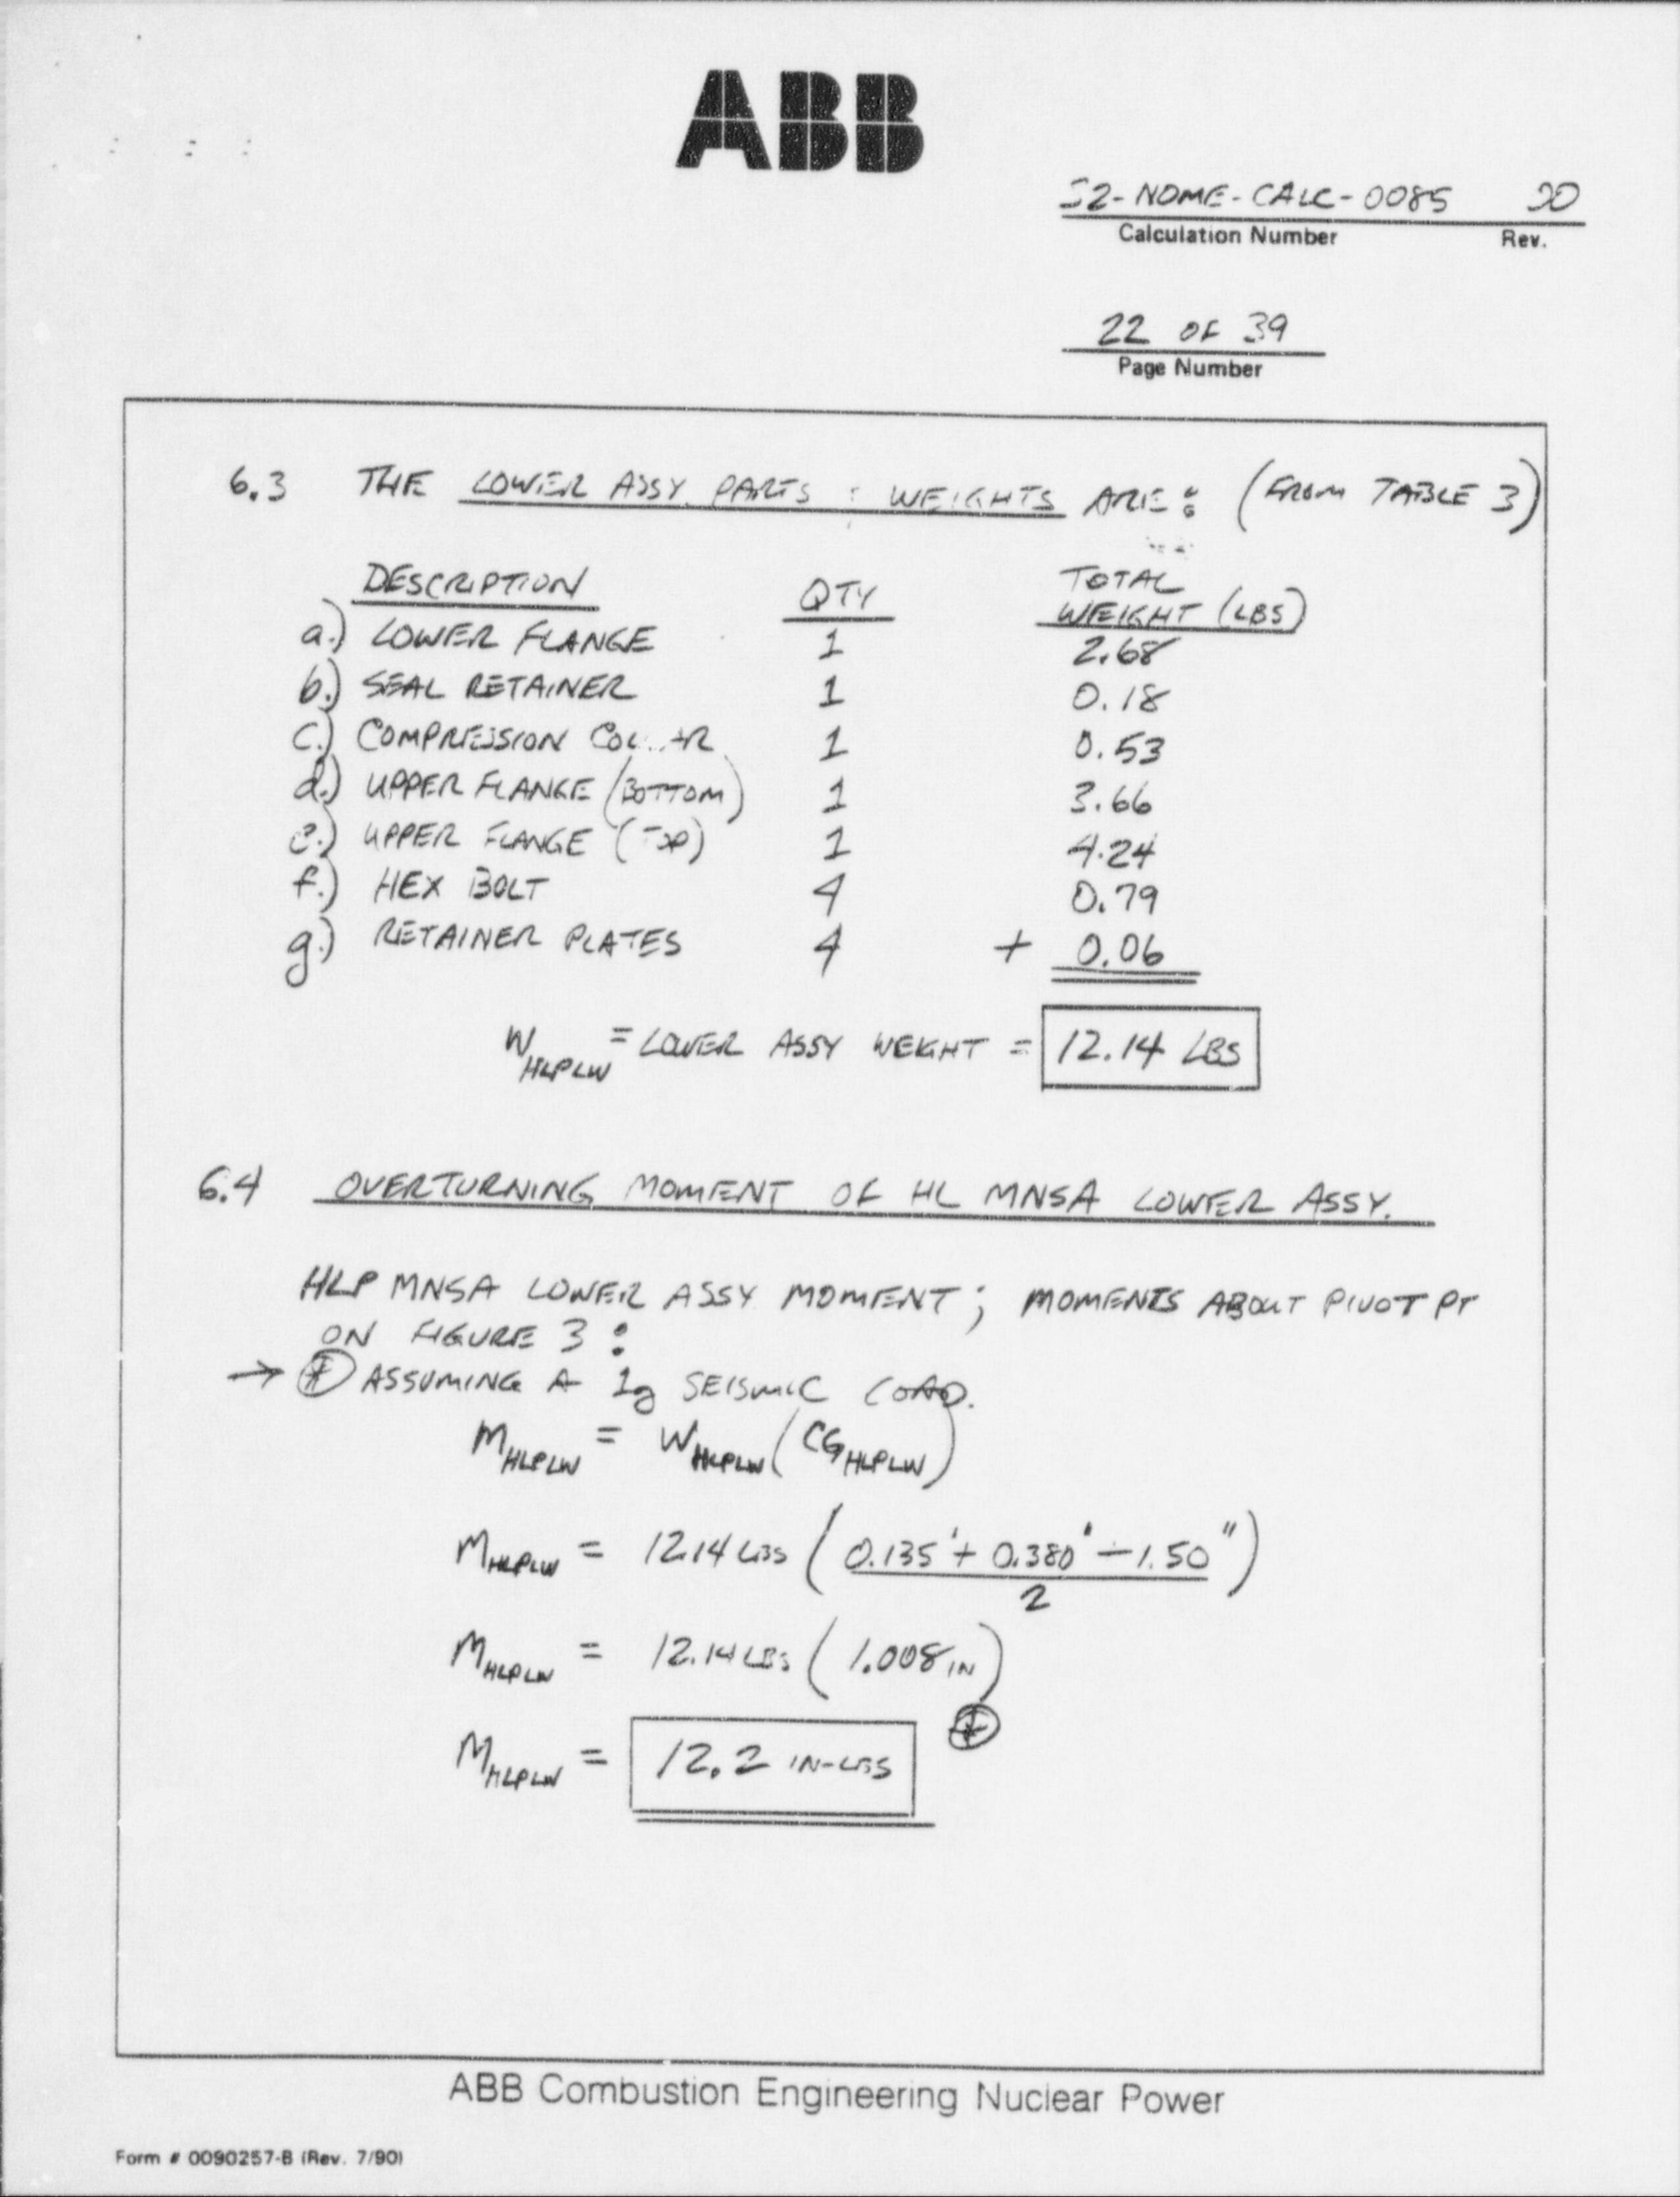 ABB
S2-NOME-CALC-0085 00
Calculation Number Rev.
22 OF 39
Page Number
6.3 THE LOWER ASSY. PARTS : WEIGHTS ARE: (FROM TABLE 3)
DESCRIPTION QTY TOTAL WEIGHT (LBS)
a.) LOWER FLANGE 1 2.68
b.) SEAL RETAINER 1 0.18
c.) COMPRESSION COLLAR 1 0.53
d.) UPPER FLANGE (BOTTOM) 1 3.66
e.) UPPER FLANGE (TOP) 1 4.24
f.) HEX BOLT 4 0.79
g.) RETAINER PLATES 4 + 0.06
W HLPLW = LOWER ASSY WEIGHT = 12.14 LBS
6.4 OVERTURNING MOMENT OF HL MNSA LOWER ASSY.
HLP MNSA LOWER ASSY MOMENT; MOMENTS ABOUT PIVOT PT
ON FIGURE 3:
→ * ASSUMING A 1g SEISMIC LOAD.
M HLPLW = W HLPLW (CG HLPLW)
M HLPLW = 12.14 LBS (0.135" + 0.380" + 1.50" / 2)
M HLPLW = 12.14 LBS (1.008 IN)
M HLPLW = 12.2 IN-LBS *
ABB Combustion Engineering Nuclear Power
Form # 0090257-B (Rev. 7/90)